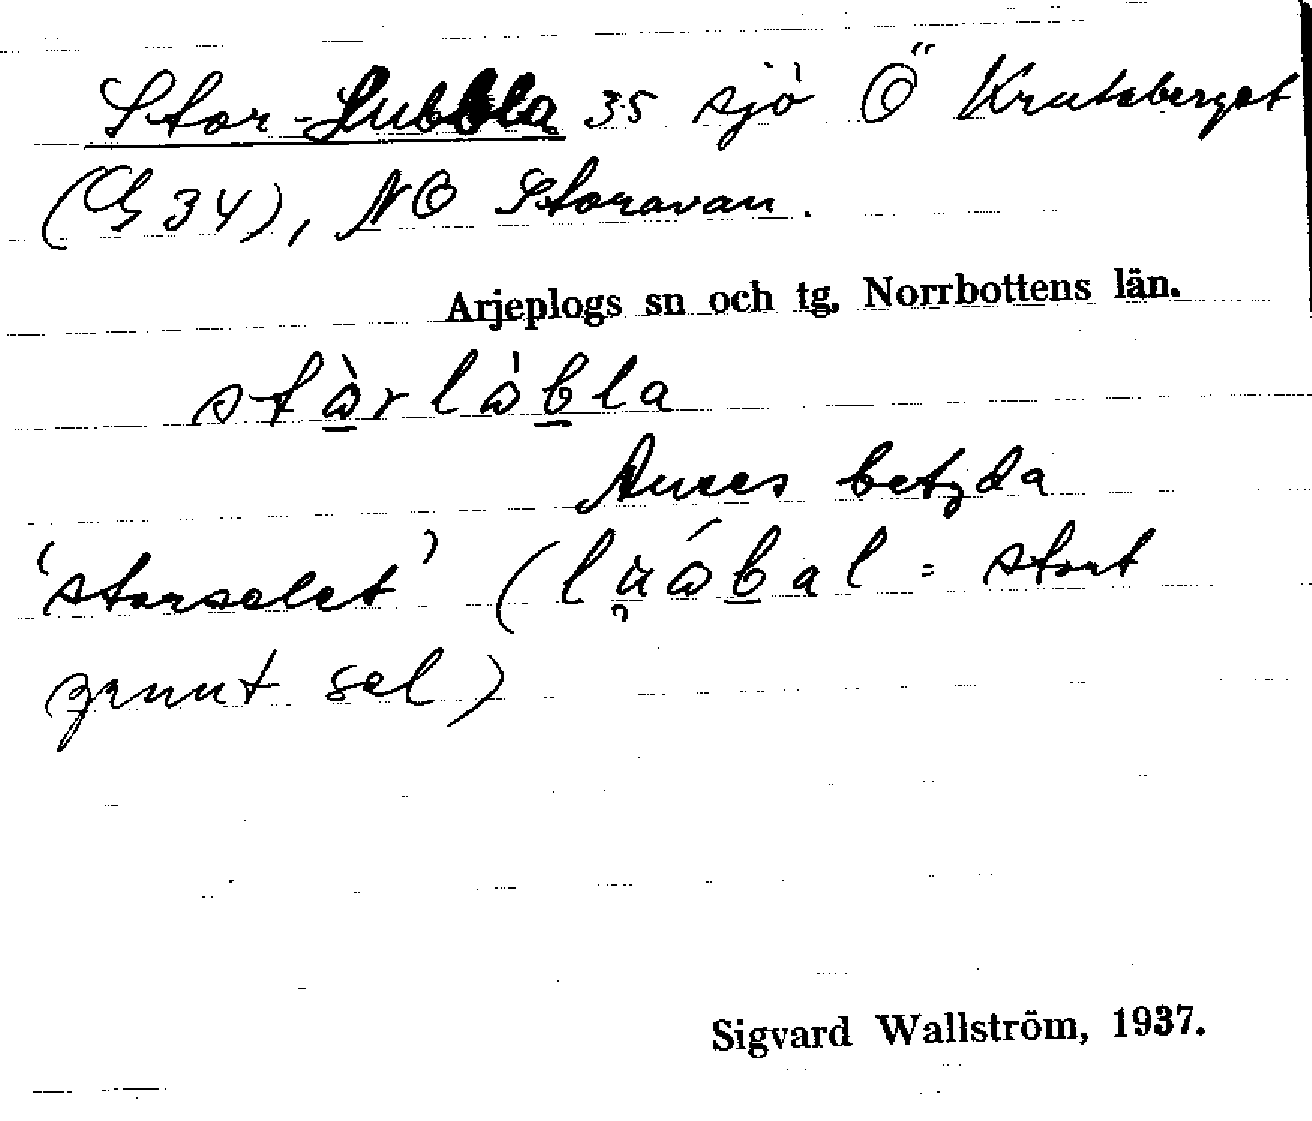 Stor-Lubbla 35 sjö Ö Krutsberget
(G 34), NO Storavan.
Arjeplogs sn och tg, Norrbottens län.
stɷ̀rlɷ̀bla
Anses betyda
'storselet' (lu̯ɷ́bal = stort
grunt sel)
Sigvard Wallström, 1937.